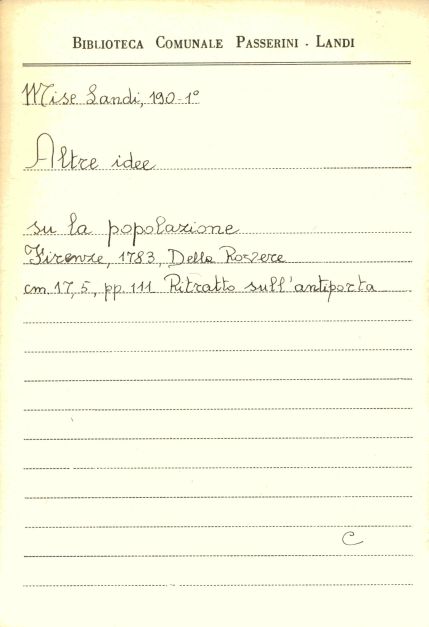 BIBLIOTECA COMUNALE PASSERINI - LANDI
Mise Landi, 190-1°
Altre idee
su la popolazione
Firenze, 1783, Della Rovere
cm. 17,5, pp. 111 Ritratto sull'antiporta
C